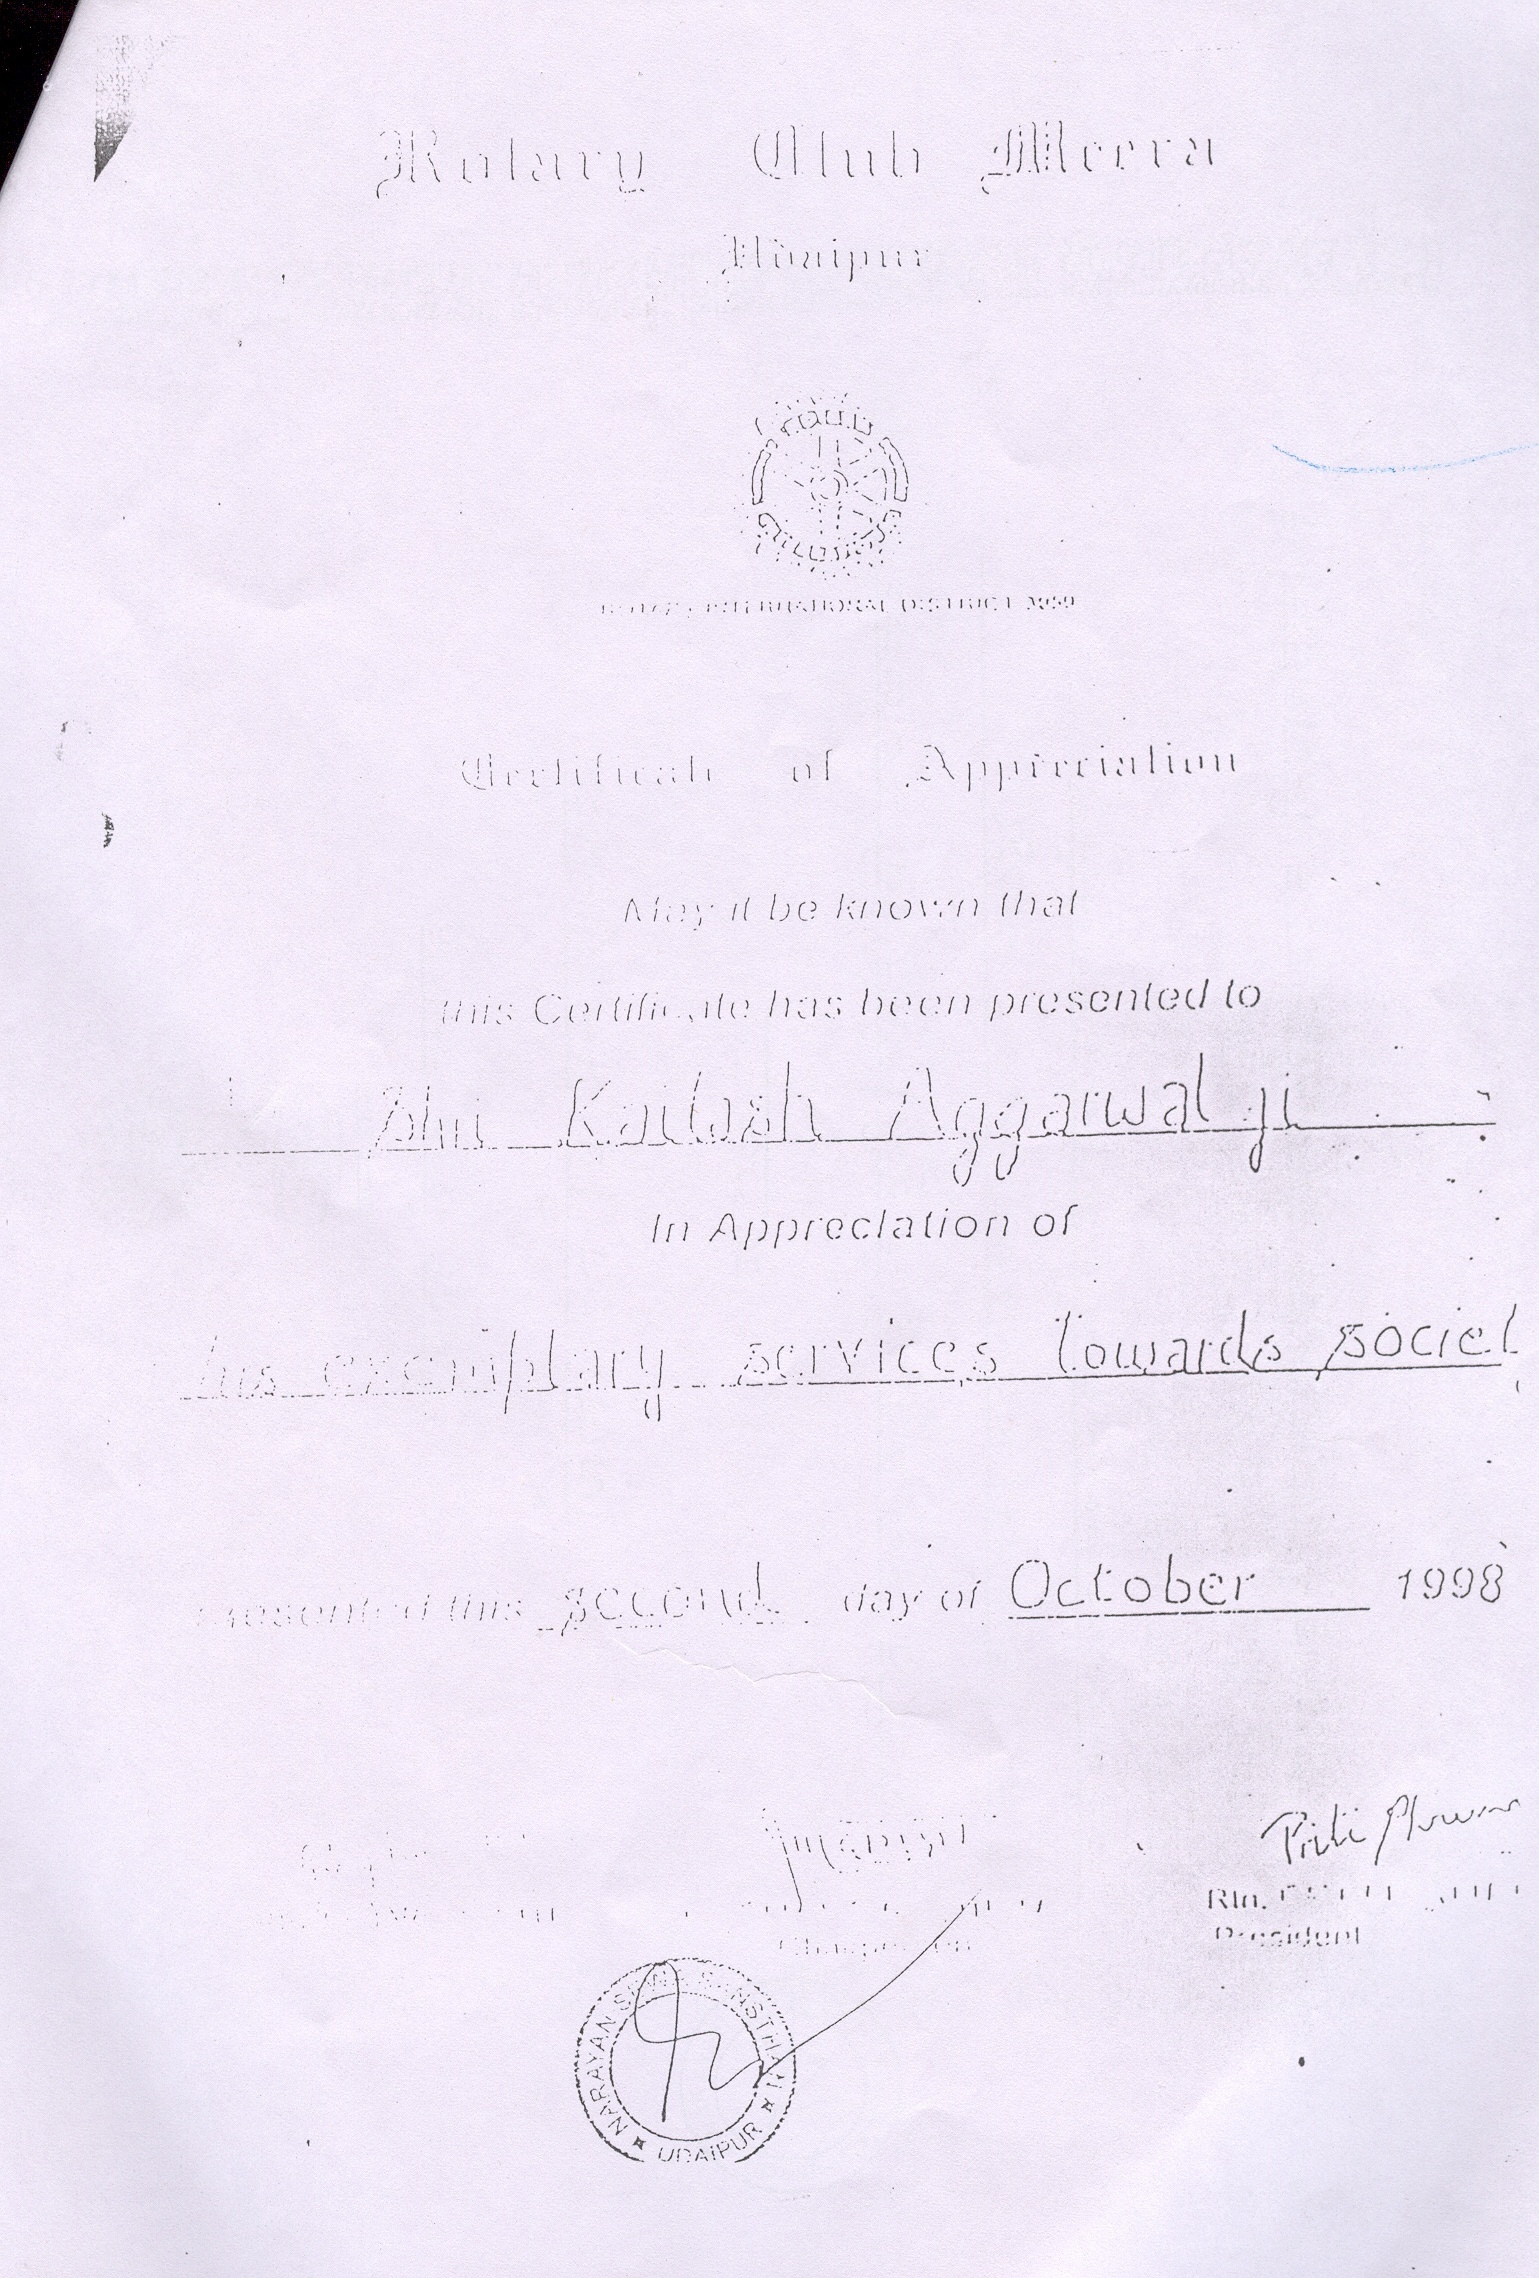 Rotary Club Meera
Udaipur
ROTARY INTERNATIONAL DISTRICT
Certificate of Appreciation
May it be known that
this Certificate has been presented to
Shri Kailash Aggarwal ji
In Appreciation of
his exemplary services towards societ
Presented this second day of October 1998
Priti
Rtn.
Chairperson
President
NARAYAN SEWA SANSTHAN
UDAIPUR